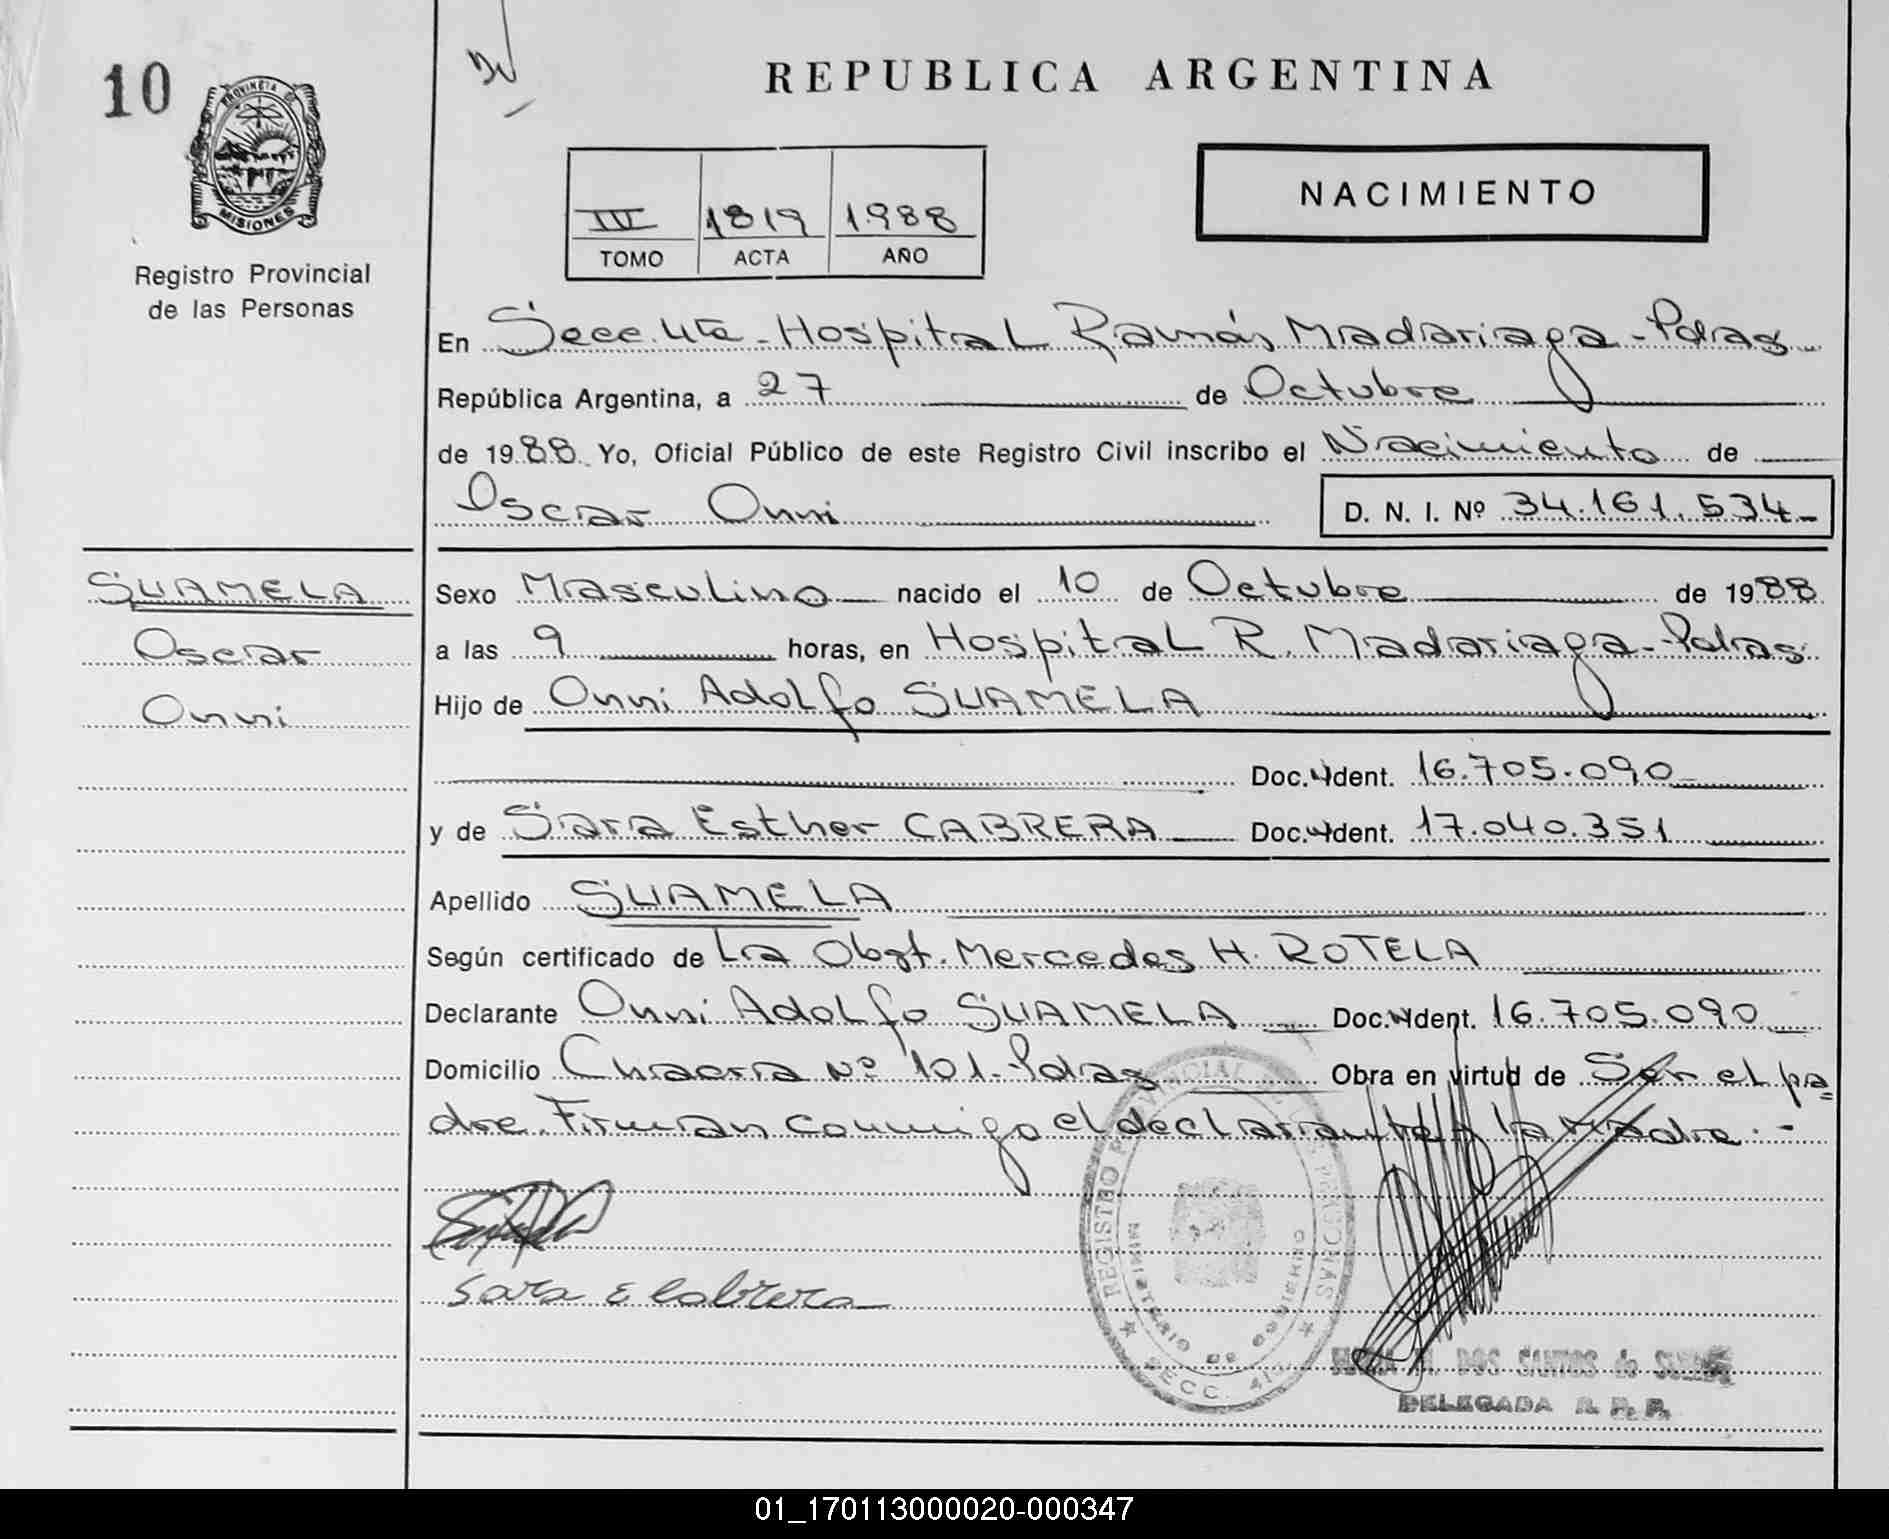 10
PROVINCIA DE
MISIONES
Registro Provincial
de las Personas
REPUBLICA ARGENTINA
NACIMIENTO
III 1819 1988
TOMO ACTA AÑO
En Secc. 4ta - Hospital Ramón Madariaga - Pdas
República Argentina, a 27 de Octubre
de 1988 Yo, Oficial Público de este Registro Civil inscribo el Nacimiento de
Oscar Onni D. N. I. Nº 34.161.534-
SUAMELA
Oscar
Onni
Sexo Masculino nacido el 10 de Octubre de 1988
a las 9 horas, en Hospital R. Madariaga - Pdas
Hijo de Onni Adolfo SUAMELA
Doc. Ident. 16.705.090
y de Sara Esther CABRERA Doc. Ident. 17.040.351
Apellido SUAMELA
Según certificado de La Obst. Mercedes H. ROTELA
Declarante Onni Adolfo SUAMELA Doc. Ident. 16.705.090
Domicilio Chacra Nº 101 - Pdas Obra en virtud de Ser el pa=
dre. Firman conmigo el declarante y la Madre.-
Sara E Cabrera
REGISTRO PROVINCIAL DE LAS PERSONAS
MINISTERIO DE GOBIERNO
SECC. 4ta
DOS SANTOS de
DELEGADA R. P. P.
01_170113000020-000347